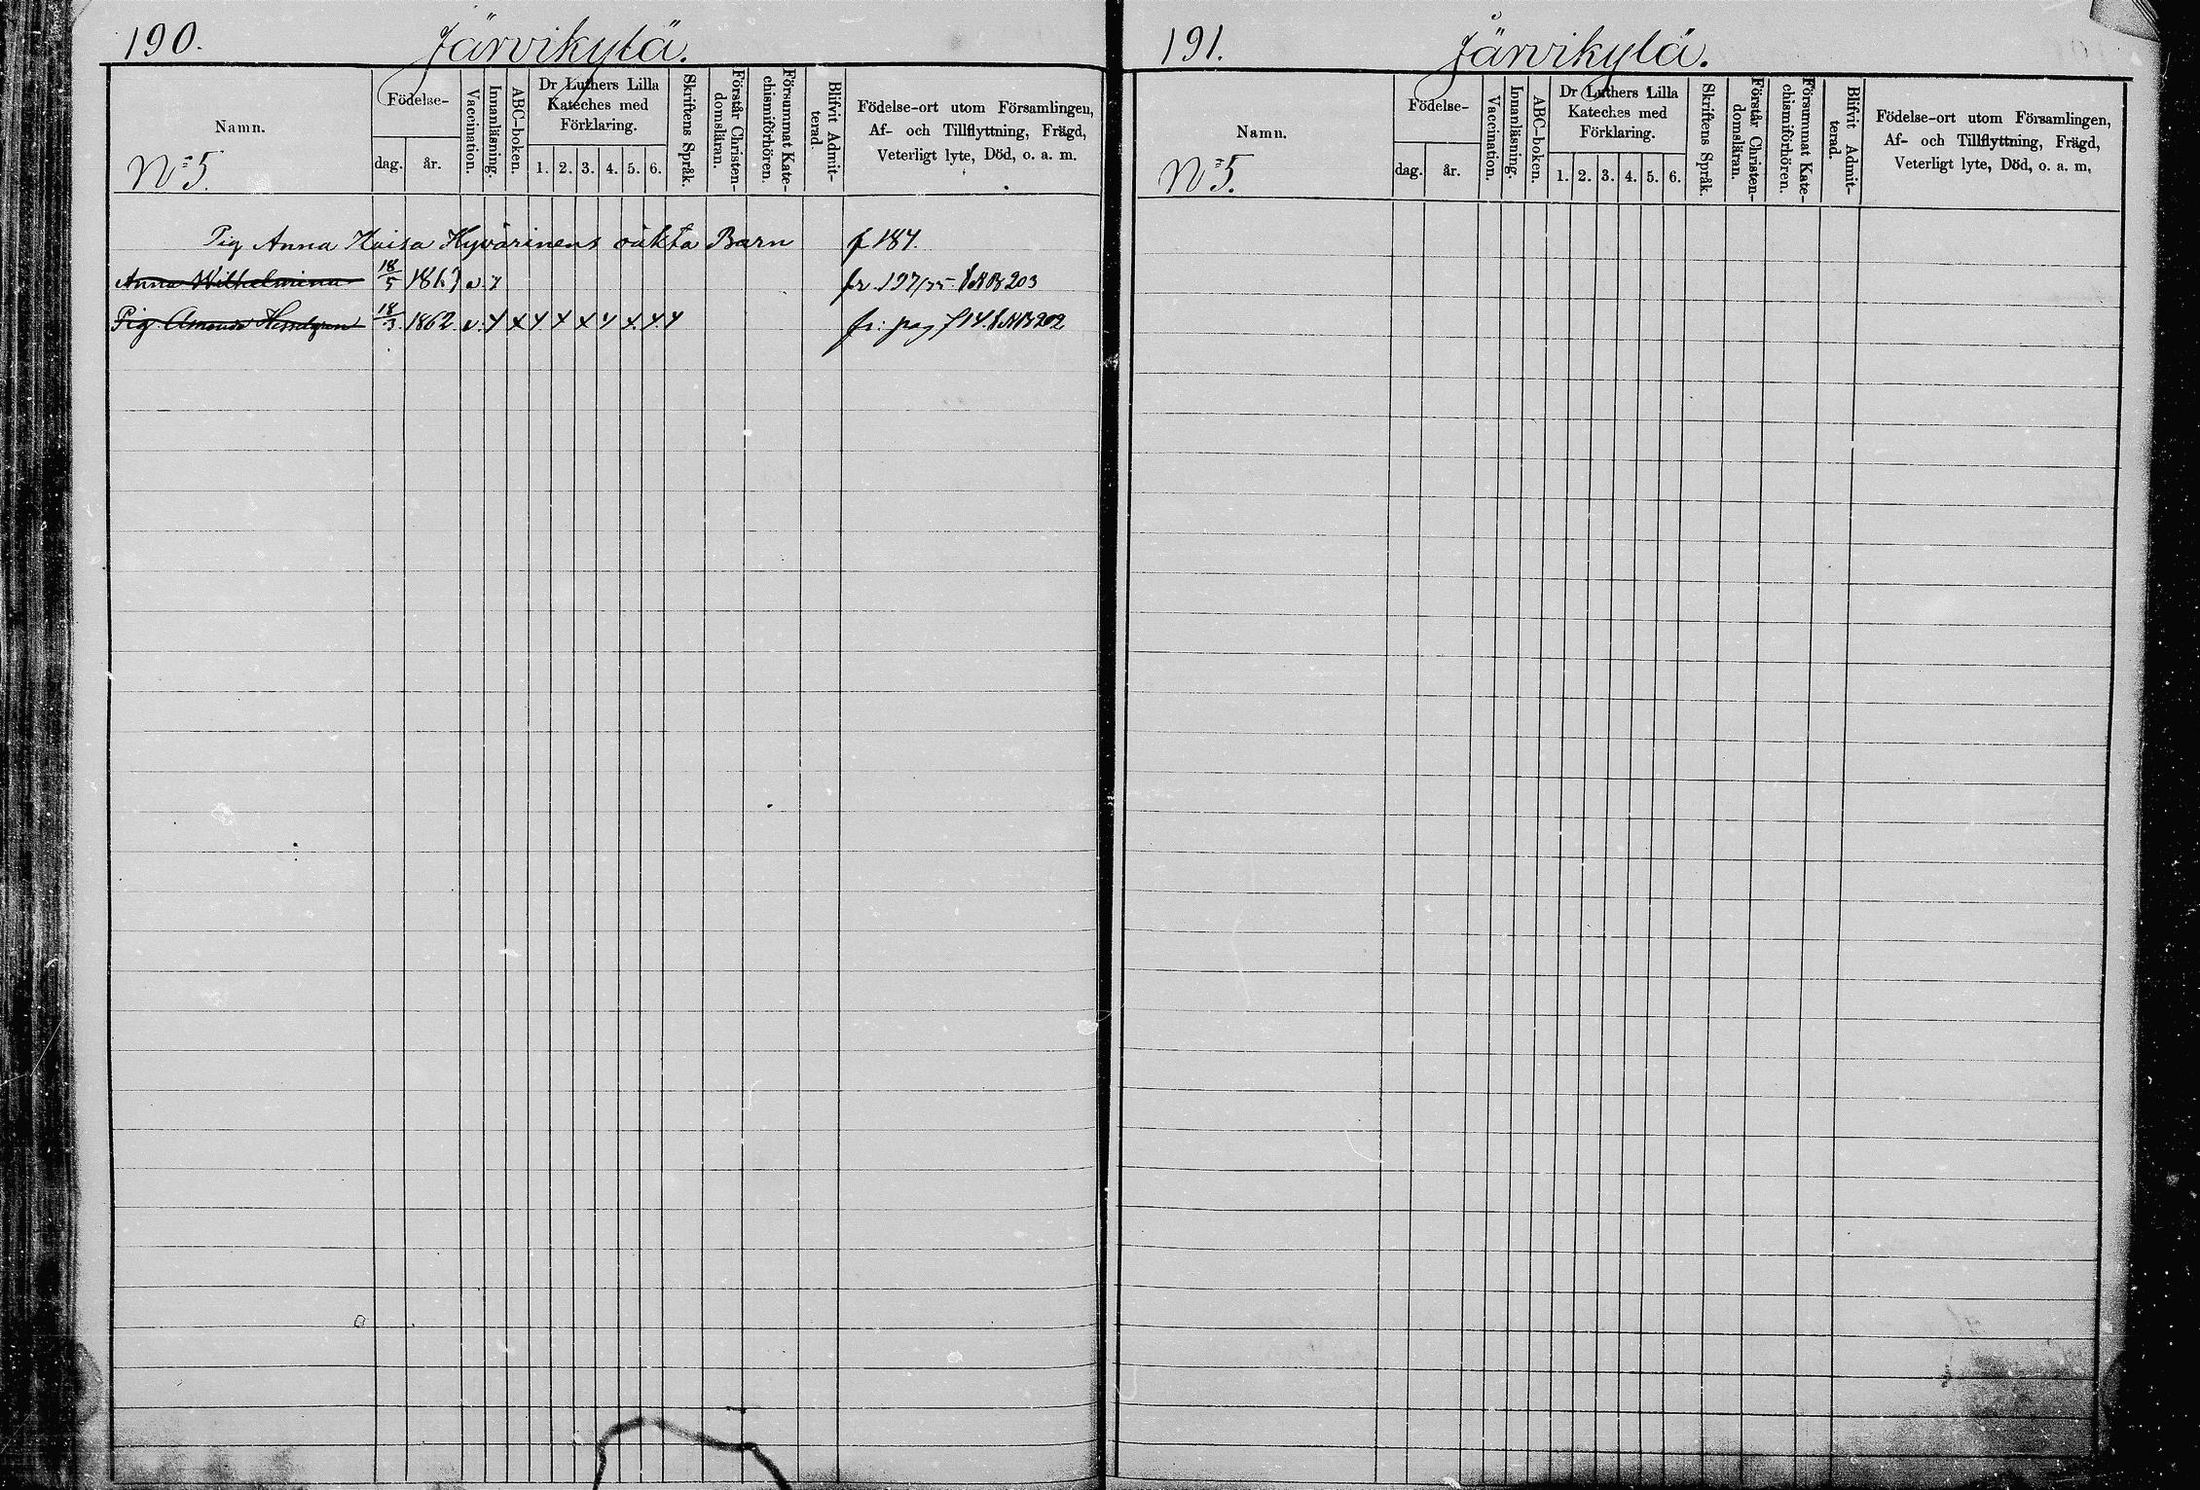 190.
Järvikylä.
Namn.
No 5.
Födelse-
dag.
år.
Vaccination.
Innanläsning.
ABC-boken.
Dr Luthers Lilla
Kateches med
Förklaring.
1. 2. 3. 4. 5. 6.
Skriftens Språk.
Förstår Christen-
domsläran.
Försummat Kate-
chismiförhören.
Blifvit Admit-
terad.
Födelse-ort utom Församlingen,
Af- och Tillflyttning, Frägd,
Veterligt lyte, Död, o. a. m.
Pig Anna Kaisa Hyvärinens oäkta Barn f 184.
Anna Wilhelmina 18/5 186 v. fr. 197/75 NB 203
Pig Amanda 18/3 1862 v. x x x x x x x x x fr: pag 714 NB 202
191.
Järvikylä.
Namn.
No 5.
Födelse-
dag.
år.
Vaccination.
Innanläsning.
ABC-boken.
Dr Luthers Lilla
Kateches med
Förklaring.
1. 2. 3. 4. 5. 6.
Skriftens Språk.
Förstår Christen-
domsläran.
Försummat Kate-
chismiförhören.
Blifvit Admit-
terad.
Födelse-ort utom Församlingen,
Af- och Tillflyttning, Frägd,
Veterligt lyte, Död, o. a. m,